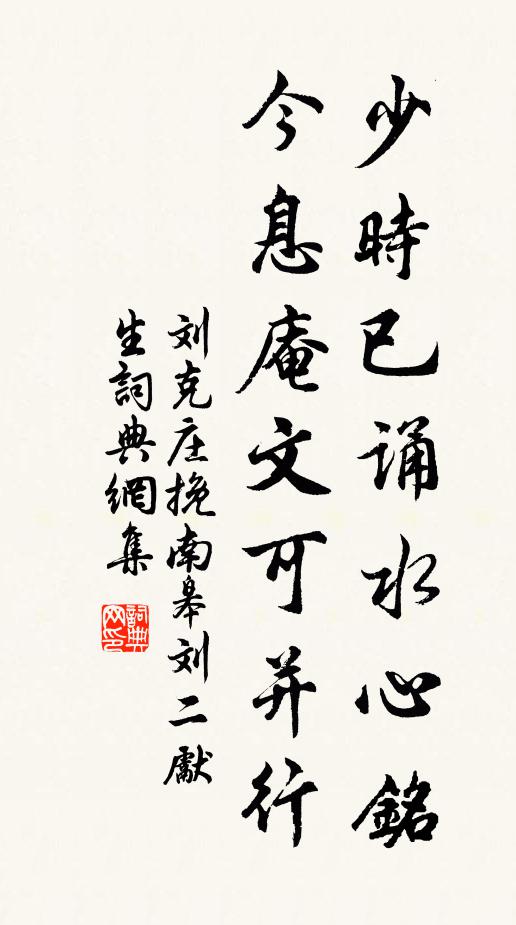 少時已誦水心銘
今息庵文可并行
刘克庄挽南皋刘二獻
生詞典網集
詞典网印